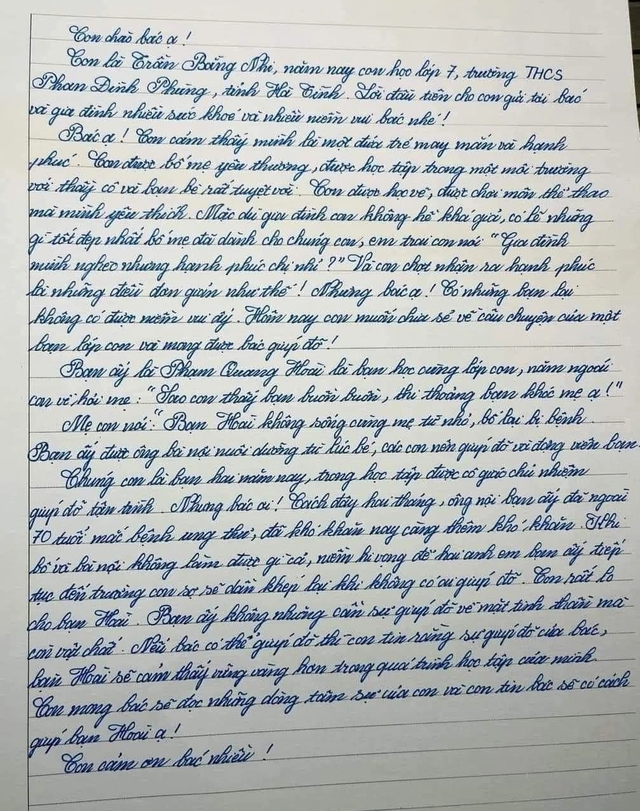 Con chào bác ạ!
Con là Trần Băng Nhi, năm nay con học lớp 7, trường THCS
Phan Đình Phùng, tỉnh Hà Tĩnh. Lời đầu tiên cho con gửi tới bác
và gia đình nhiều sức khoẻ và nhiều niềm vui bác nhé!
Bác ạ! Con cảm thấy mình là một đứa trẻ may mắn và hạnh
phúc. Con được bố mẹ yêu thương, được học tập trong một môi trường
với thầy cô và bạn bè rất tuyệt vời. Con được học vẽ, được chơi môn thể thao
mà mình yêu thích. Mặc dù gia đình con không hề khá giả, có lẽ những
gì tốt đẹp nhất bố mẹ đã dành cho chúng con, em trai con nói "Gia đình
mình nghèo nhưng hạnh phúc chị nhỉ?" Và con chợt nhận ra hạnh phúc
là những điều đơn giản như thế! Nhưng bác ạ! Có những bạn lại
không có được niềm vui ấy. Hôm nay con muốn chia sẻ về câu chuyện của một
bạn lớp con và mong được bác giúp đỡ!
Bạn ấy là Phạm Quang Hoài là bạn học cùng lớp con, năm ngoái
con về hỏi mẹ: "Sao con thấy bạn buồn buồn, thi thoảng bạn khóc mẹ ạ!"
Mẹ con nói: "Bạn Hoài không sống cùng mẹ từ nhỏ, bố lại bị bệnh.
Bạn ấy được ông bà nội nuôi dưỡng từ lúc bé, các con nên giúp đỡ và động viên bạn.
Chúng con là bạn hai năm nay, trong học tập được cô giáo chủ nhiệm
giúp đỡ tận tình. Nhưng bác ạ! Cách đây hai tháng, ông nội bạn ấy đã ngoài
70 tuổi mắc bệnh ung thư, đã khó khăn nay càng thêm khó khăn. Khi
bố và bà nội không làm được gì cả, niềm hi vọng để hai anh em bạn ấy tiếp
tục đến trường con sợ sẽ dần khép lại khi không có ai giúp đỡ. Con rất lo
cho bạn Hoài. Bạn ấy không những cần sự giúp đỡ về mặt tinh thần mà
còn vật chất. Nếu bác có thể giúp đỡ thì con tin rằng sự giúp đỡ của bác,
bạn Hoài sẽ cảm thấy vững vàng hơn trong quá trình học tập của mình.
Con mong bác sẽ đọc những dòng tâm sự của con và con tin bác sẽ có cách
giúp bạn Hoài ạ!
Con cảm ơn bác nhiều!